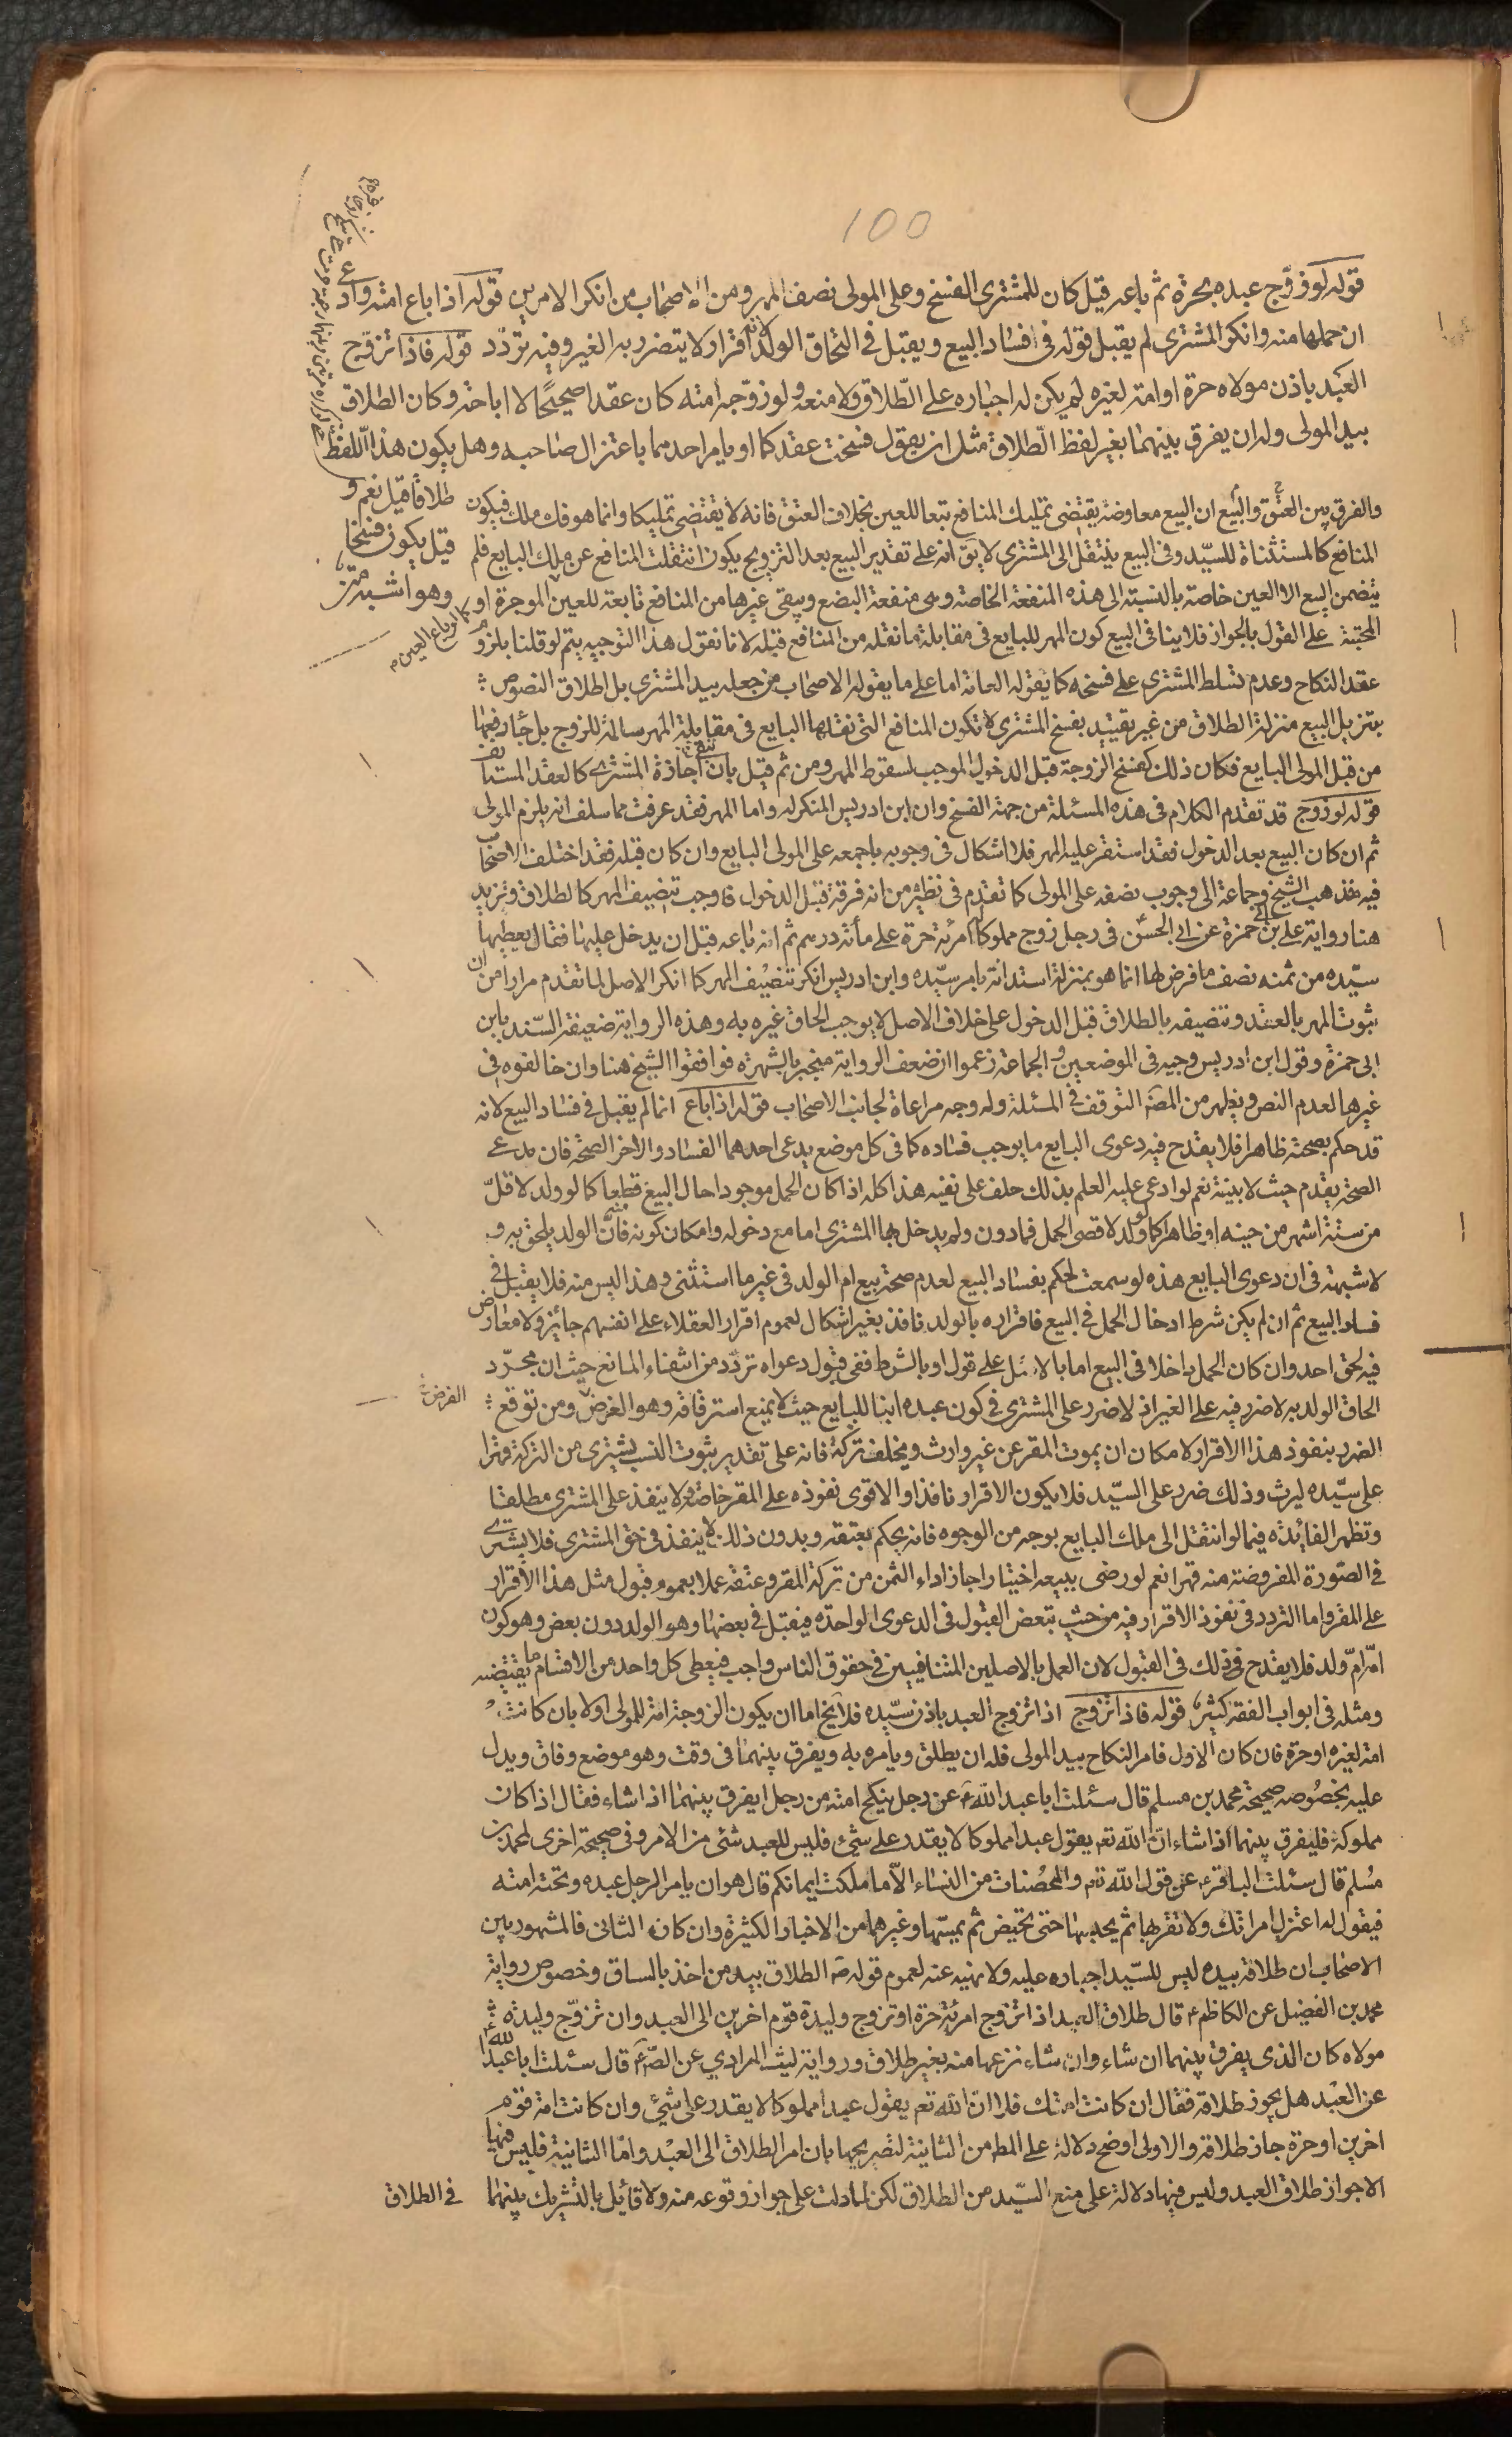 100
قوله لو زوّج عبده بحرة ثم باعه قيل كان للمشترى الفسخ وعلى المولى نصف المهر ومن الاصحاب من انكر الامرين قوله اذا باع امته وادعى
ان حملها منه وانكر المشترى لم يقبل قوله فى افساد البيع ويقبل فى التحاق الولد لانه اقرار ولا يتضرر به الغير وفيه تردّد قوله فاذا تزوّج
العبد باذن مولاه حرة او امة لغيره لم يكن له اجباره على الطّلاق ولا منعه ولو زوّجه امته كان عقدا صحيحًا لا اباحة وكان الطلاق
بيد المولى وله ان يفرق بينهما بغير لفظ الطّلاق مثل ان يقول فسخت عقدكما او يامر احدهما باعتزال صاحبه وهل يكون هذا اللّفظ
طلاقا قيل نعم و
قيل يكون فسخا
وهو اشبه
والفرق بين العتق والبيع ان البيع معاوضة يقتضى تمليك المنافع تبعا للعين بخلاف العتق فانه لا يقتضى تمليكا وانما هو فك ملك فيكون
المنافع كالمستثناة للسيّد وفى البيع ينتقل الى المشترى لا يق انه على تقدير البيع بعد التزويج يكون انتقلت المنافع عن ملك البايع فلم
يتضمن البيع الا العين خاصة بالنسبة الى هذه المنفعة الخاصة وهى منفعة البضع ويبقى غيرها من المنافع تابعة للعين الموجرة او
كما لو باع العين
على القول بالجواز فلا ينافى البيع كون المهر للبايع فى مقابلة ما نقله من المنافع قبله لانا نقول هذا التوجيه يتم لو قلنا بلزوم
عقد النكاح وعدم تسلط المشترى على فسخه كما يقوله العامة اما على ما يقوله الاصحاب من جعله بيد المشترى بل اطلاق النصوص
بتنزيل البيع منزلة الطلاق من غير تقييد بفسخ المشترى لا تكون المنافع التى نقلها البايع فى مقابلة المهر سالمة للزوج بل جاء رفعها
من قبل المولى البايع فكان ذلك كفسخ الزوجة قبل الدخول الموجب لسقوط المهر ومن ثم قيل بان اجازة المشترى كالعقد المستانف
قوله لو زوج قد تقدم الكلام فى هذه المسئلة من جهة الفسخ وان ابن ادريس المنكر له واما المهر فقد عرفت مما سلف انه يلزم المولى
ثم ان كان البيع بعد الدخول فقد استقر عليه المهر فلا اشكال فى وجوبه باجمعه على المولى البايع وان كان قبله فقد اختلف الاصحاب
فيه فذهب الشيخ وجماعة الى وجوب نصفه على المولى كما تقدم فى نظيره من انه فرقة قبل الدخول فاوجب تنصيف المهر كالطلاق ويزيد
هنا رواية على بن ابى حمزة عن ابى الحسن فى رجل زوج مملوكا له امرئة حرة على مأئة درهم ثم انه باعه قبل ان يدخل عليها فقال يعطيها
سيّده من ثمنه نصف ما فرض لها انما هو بمنزلة استدانة بامر سيّده وابن ادريس انكر تنصيف المهر كما انكر الاصل لما تقدم مرارا من ان
ثبوت المهر بالعقد وتنصيفه بالطلاق قبل الدخول على خلاف الاصل لا يوجب الحاق غيره به وهذه الرواية ضعيفة السّند بابن
ابى حمزة وقول ابن ادريس وجيه فى الموضعين والجماعة زعموا ان ضعف الرواية منجبر بالشهرة فوافقوا الشيخ هنا وان خالفوه فى
غيرها لعدم النص ويظهر من المصه التوقف فى المسئلة وله وجه مراعاة لجانب الاصحاب قوله اذا باع انما لم يقبل فى فساد البيع لانه
قد حكم بصحته ظاهرا فلا يقدح فيه دعوى البايع ما يوجب فساده كما فى كل موضع يدعى احدهما الفساد والاخر الصحة فان مدعى
الصحة يقدم حيث لا بينة نعم لو ادعى عليه العلم بذلك حلف على نفيه هذا كله اذا كان الحمل موجودا حال البيع قطعا كما لو ولد لاقلّ
من ستة اشهر من حينه او ظاهرا كما لو ولد لاقصى الحمل فما دون ولم يدخل بها المشترى اما مع دخوله وامكان كونه منه فانّ الولد يلحق به و
لا شبهة فى ان دعوى البايع هذه لو سمعت لحكم بفساد البيع لعدم صحة بيع ام الولد فى غير ما استثنى وهذا ليس منه فلا يقبل فى
فساد البيع ثم ان لم يكن شرط ادخال الحمل فى البيع فاقراره بالولد نافذ بغير اشكال لعموم اقرار العقلاء على انفسهم جائز ولا معارض
فيه لحق احد وان كان الحمل داخلا فى البيع اما بالاصل على قول او بالشرط ففى قبول دعواه تردّد من انتفاء المانع حيث ان مجرّد
الحاق الولد به لا ضرر فيه على الغير اذ لا ضرر على المشترى فى كون عبده ابنا للبايع حيث لا يمنع استرقاقه وهو الغرض ومن توقع
الفرض
الضرر بنفوذ هذا الاقرار لامكان ان يموت المقر عن غير وارث ويخلف تركة فانه على تقدير ثبوت النسب يشترى من التركة قهرا
على سيّده ليرث وذلك ضرر على السيّد فلا يكون الاقرار نافذا والاقوى نفوذه على المقر خاصة ولا ينفذ على المشترى مطلقا
وتظهر الفائدة فيما لو انتقل الى ملك البايع بوجه من الوجوه فانه يحكم بعتقه وبدون ذلك لا ينفذ فى حق المشترى فلا يشترى
فى الصّورة المفروضة منه قهرا نعم لو رضى ببيعه اختيارا جاز اداء الثمن من تركة المقر وعتقه عملا بعموم قبول مثل هذا الاقرار
على المقر واما التردد فى نفوذ الاقرار فيه من حيث تبعض القبول فى الدعوى الواحدة فيقبل فى بعضها وهو الولد دون بعض وهو كون
امّه امّ ولد فلا يقدح فى ذلك فى القبول لان العمل بالاصلين المتنافيين فى حقوق الناس واجب فيعطى كل واحد من الاقسام ما يقتضيه
ومثله فى ابواب الفقه كثير قوله فاذا تزوج اذا تزوج العبد باذن سيّده فلا يخ اما ان يكون الزوجة امة للمولى او لا بان كانت
امة لغيره او حرة فان كان الاول فامر النكاح بيد المولى فله ان يطلق ويامره به ويفرق بينهما فى وقت وهو موضع وفاق ويدل
عليه بخصوصه صحيحة محمد بن مسلم قال سئلت ابا عبد اللّه ع عن رجل ينكح امته من رجل ايفرق بينهما اذا شاء فقال اذا كان
مملوكه فليفرق بينهما اذا شاء انّ اللّه تعم يقول عبدا مملوكا لا يقدر على شئ فليس للعبد شئ من الامر وفى صحيحة اخرى لمحمد بن
مسلم قال سئلت الباقر ع عن قول اللّه تع والمحصنات من النساء الّا ما ملكت ايمانكم قال هو ان يامر الرجل عبده وتحته امته
فيقول له اعتزل امراتك ولا تقربها ثم يحبسها حتى تحيض ثم يمسّها وغيرهما من الاخبار الكثيرة وان كان الثانى فالمشهور بين
الاصحاب ان طلاقه بيده ليس للسّيد اجباره عليه ولا نهيه عنه لعموم قوله ص الطلاق بيد من اخذ بالساق وخصوص رواية
محمد بن الفضيل عن الكاظم ع قال طلاق العبد اذا تزوج امرئة حرة او تزوج وليدة قوم اخرين الى العبد وان تزوّج وليدة
مولاه كان الذى يفرق بينهما ان شاء وان شاء نزعها منه بغير طلاق ورواية ليث المرادي عن الصّ ع قال سئلت ابا عبد اللّه ع
عن العبد هل يجوز طلاقه فقال ان كانت امتك فلا ان اللّه تعم يقول عبدا مملوكا لا يقدر على شئ وان كانت امة قوم
اخرين او حرة جاز طلاقه والاولى اوضح دلالة على المط من الثانية لتصريحها بان امر الطلاق الى العبد وامّا الثانية فليس فيها
الا جواز طلاق العبد وليس فيها دلالة على منع السّيد من الطلاق لكن لما دلت على جواز وقوعه منه ولا قائل بالتشريك بينهما
فى الطلاق